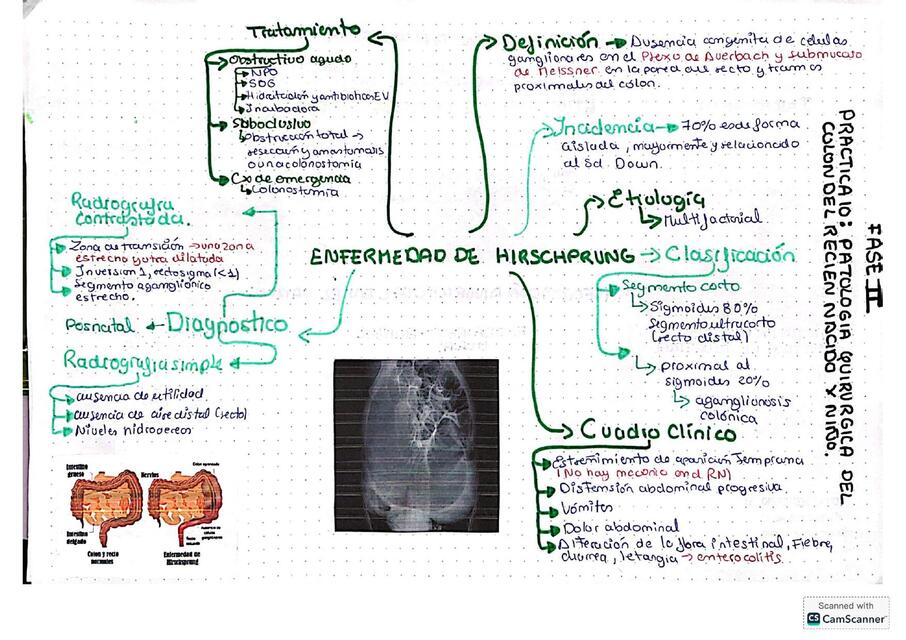 FASE II
PRACTICA 10: PATOLOGIA QUIRURGICA DEL
COLON DEL RECIEN NACIDO Y NIÑO.
ENFERMEDAD DE HIRSCHPRUNG
Definición → Ausencia congenita de células
ganglionares en el Plexo de Auerbach y submucoso
de Meissner en la pared del recto y tramos
proximales del colon.
Incidencia → 70% es de forma
aislada, mayormente y relacionado
al Sd. Down.
Etiología
Multifactorial
Clasificación
Segmento corto
Sigmoides 80%
Segmento ultracorto
(recto distal)
proximal al
sigmoides 20%
aganglionosis
colónica
Cuadro Clínico
Estreñimiento de aparición temprana
(No hay meconio en el RN)
Distensión abdominal progresiva.
Vómitos
Dolor abdominal
Alteración de la flora intestinal, Fiebre,
diarrea, letargia → enterocolitis.
Tratamiento
Obstructivo agudo
NPO
SOG
Hidratación y antibióticos EV
Incubadora
Suboclusivo
Obstrucción total →
resección y anastomosis
o una colonostomia
Cx de emergencia
Colonostomia
Diagnostico
Posnatal
Radiografia
contrastada.
Zona de transición → una zona
estrecho y otra dilatada
Inversion I, rectosigma (<1)
Segmento aganglionico
estrecho.
Radiografia simple
ausencia de utilidad.
ausencia de aire distal (recto)
Niveles hidroaereos
Intestino
grueso
Nervios
Colon agrandado
Intestino
delgado
Recto
Ausencia de
células
ganglionares
Colon y recto
normales
Enfermedad de
Hirschsprung
Scanned with
CS CamScanner